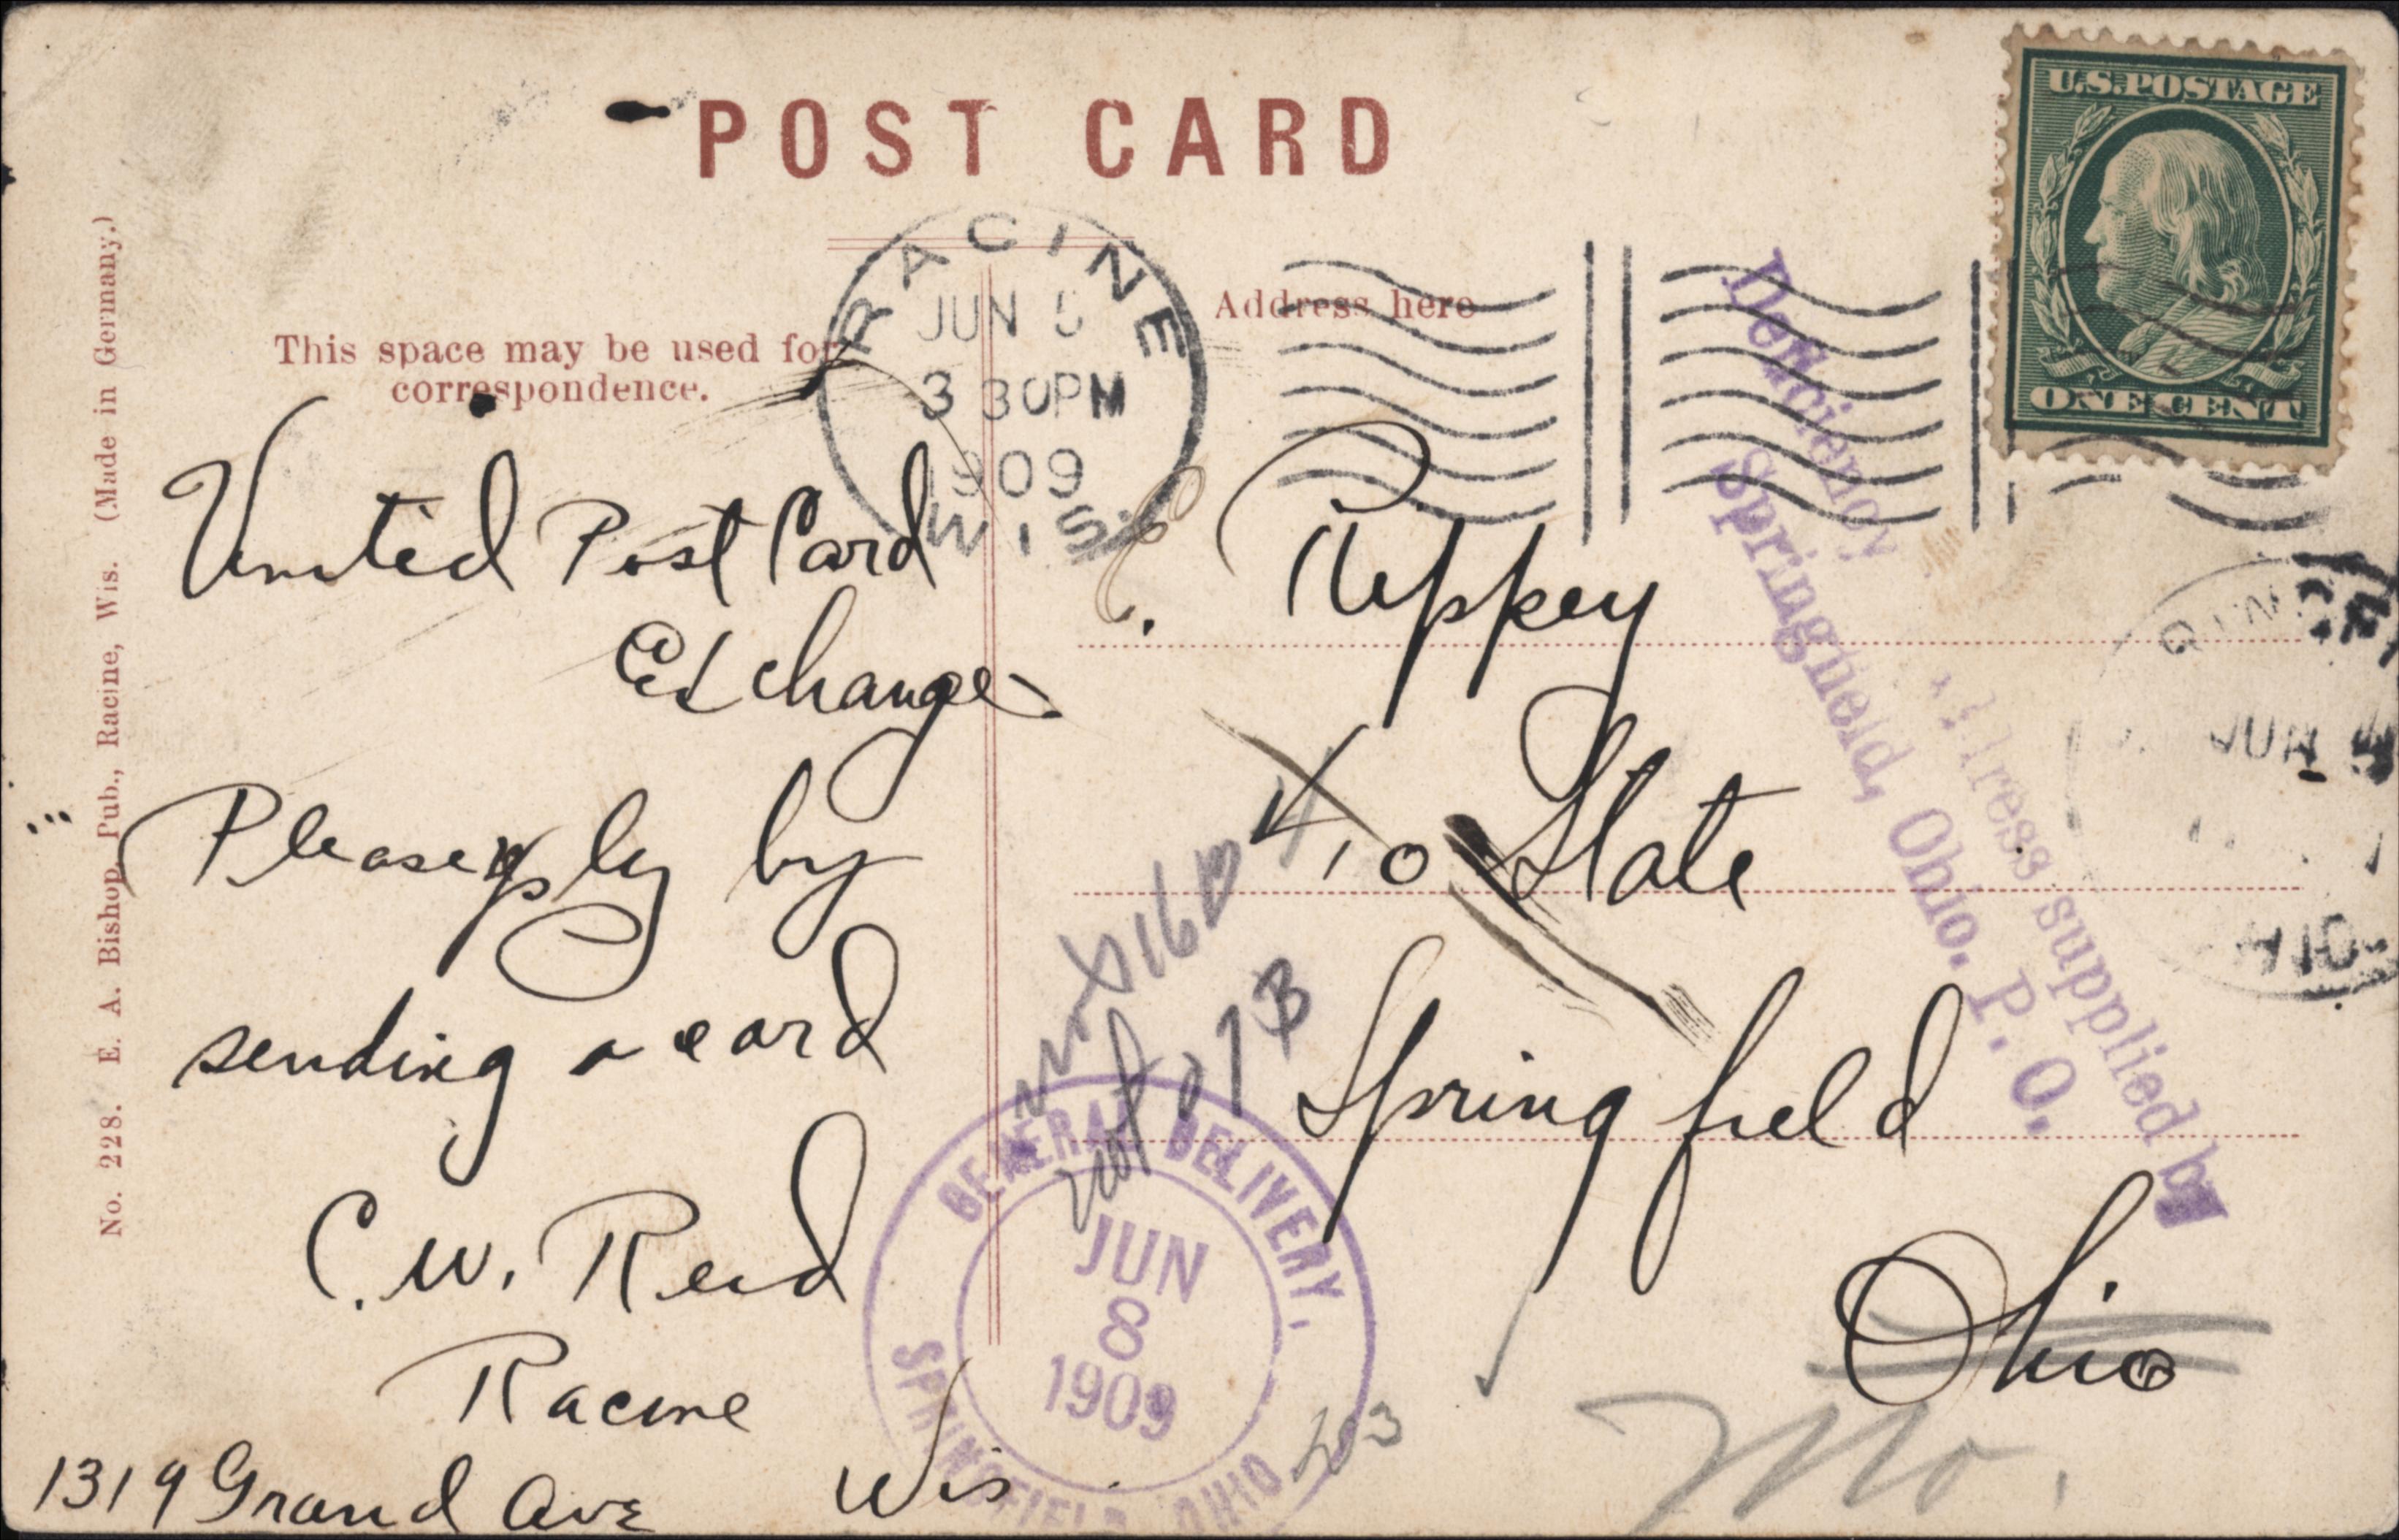 POST CARD
U.S. POSTAGE
ONE CENT
RACINE
JUN 5
3 30PM
1909
WIS.
This space may be used for
correspondence.
Address here
No. 228. E. A. Bishop, Pub., Racine, Wis. (Made in Germany.)
United Post Card
Exchange
Please reply by
sending a card
C. W. Reid
Racine
1319 Grand Ave Wis
C. Rippey
10 State
Springfield
Ohio
Mo.
Deficiency address supplied by
Springfield, Ohio. P. O.
JUN
GENERAL DELIVERY,
JUN
8
1909
SPRINGFIELD, OHIO